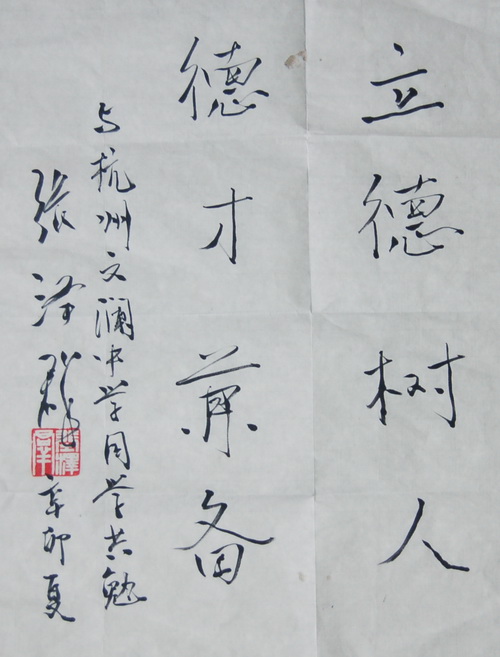 立德树人
德才兼备
与杭州文澜中学同学共勉
张泽群
辛卯夏